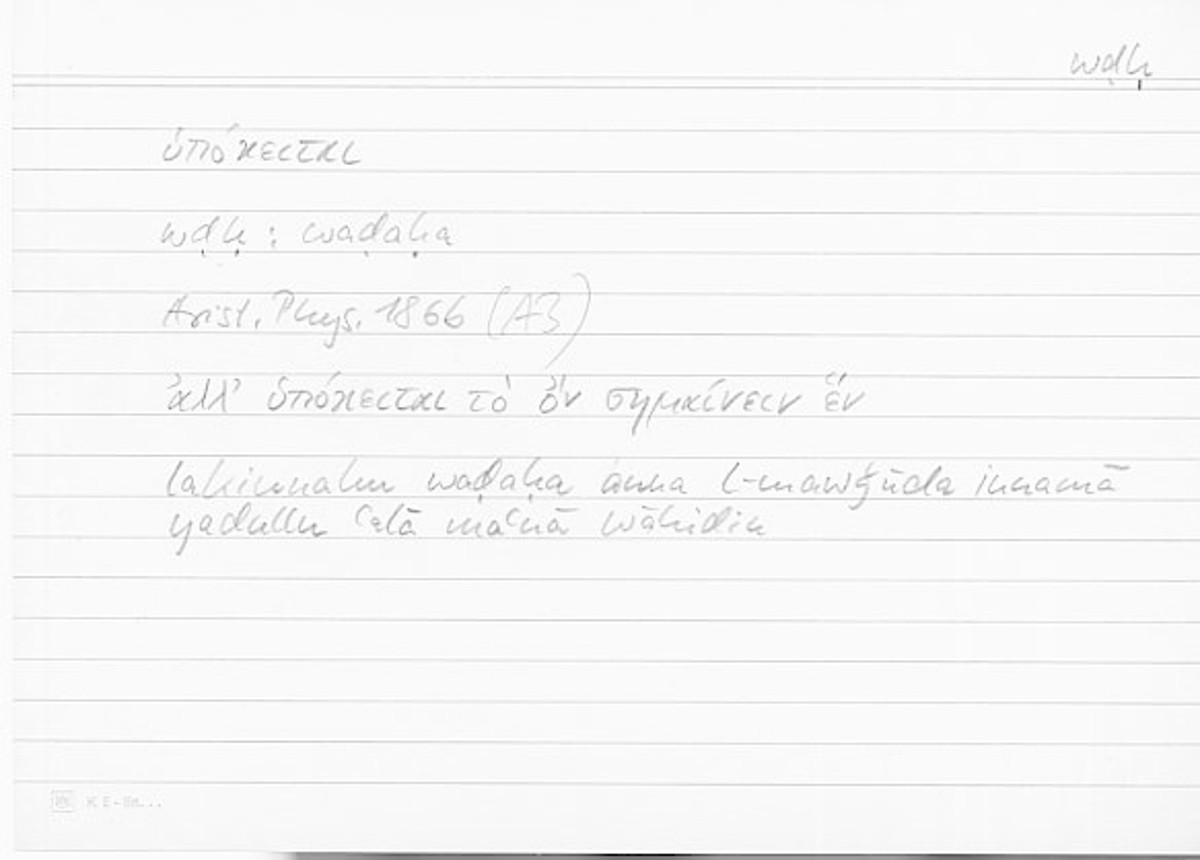 wḍḥ
ὑπόκειται
wḍḥ : waḍaḥa
Arist. Phys. 186b (A3)
ἀλλ' ὑπόκειται τὸ ὂν σημαίνειν ἕν
lakinnahu waḍaḥa anna l-mawǧūda innamā
yadullu ʿalā maʿnā wāhidin